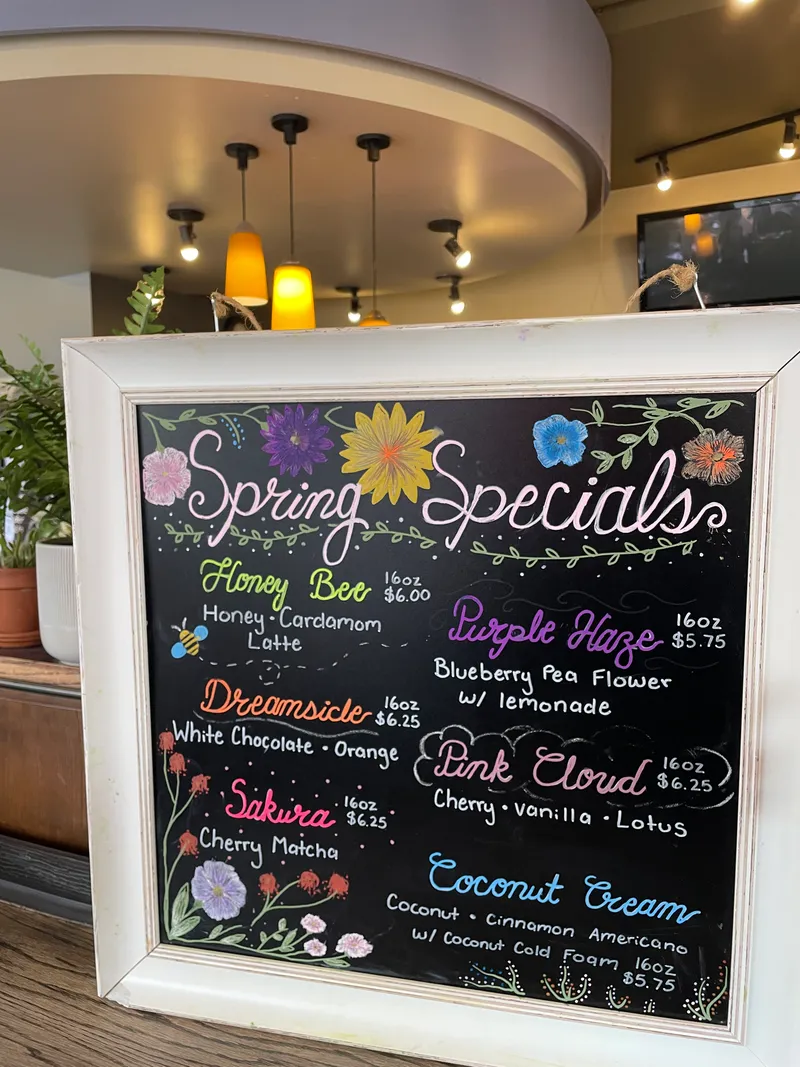 Spring Specials
Honey Bee 16oz $6.00
Honey • Cardamom
Latte
Dreamsicle 16oz $6.25
White Chocolate • Orange
Sakura 16oz $6.25
Cherry Matcha
Purple Haze 16oz $5.75
Blueberry Pea Flower
w/ lemonade
Pink Cloud 16oz $6.25
Cherry • Vanilla • Lotus
Coconut Cream
Coconut • Cinnamon Americano
w/ Coconut Cold Foam 16oz
$5.75